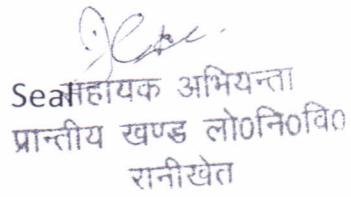 Seal सहायक अभियन्ता
प्रान्तीय खण्ड लो0नि0वि0
रानीखेत